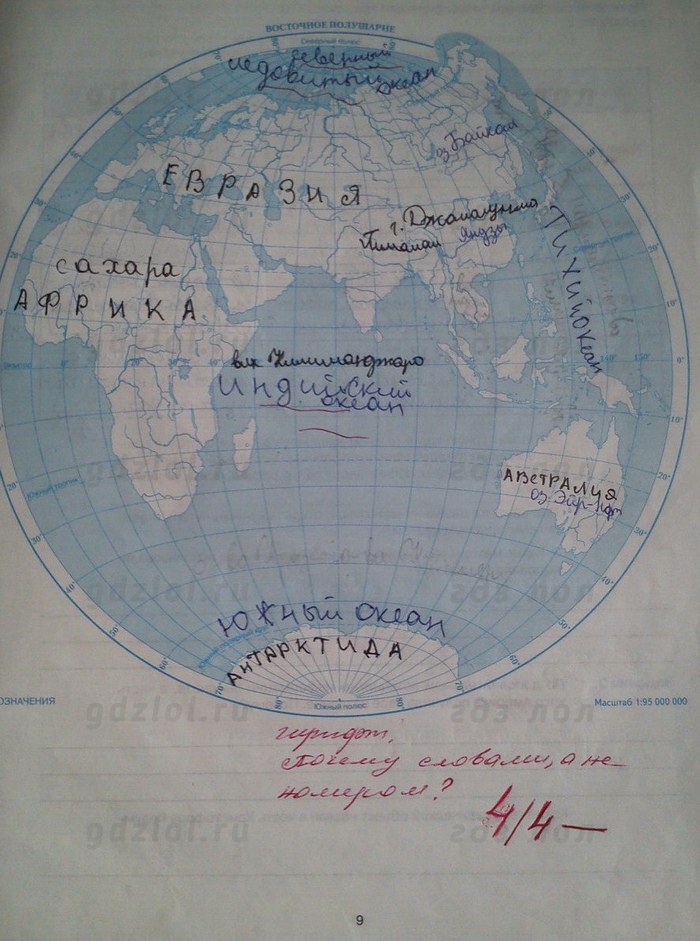 ВОСТОЧНОЕ ПОЛУШАРИЕ
Северный полюс
Северный
Ледовитый океан
оз Байкал
ЕВРАЗИЯ
г. Джомолунгма
Гималаи Янцзы
ТИХИЙ Океан
сахара
АФРИКА
влк Килиманджаро
Индийский
океан
АВСТРАЛИЯ
оз. Эйр-
Южный океан
АНТАРКТИДА
Южный полюс
ОЗНАЧЕНИЯ
Масштаб 1:95 000 000
gdzlol.ru
шрифт,
Почему словами, а не
номером?
4/4—
gdzlol.ru
9